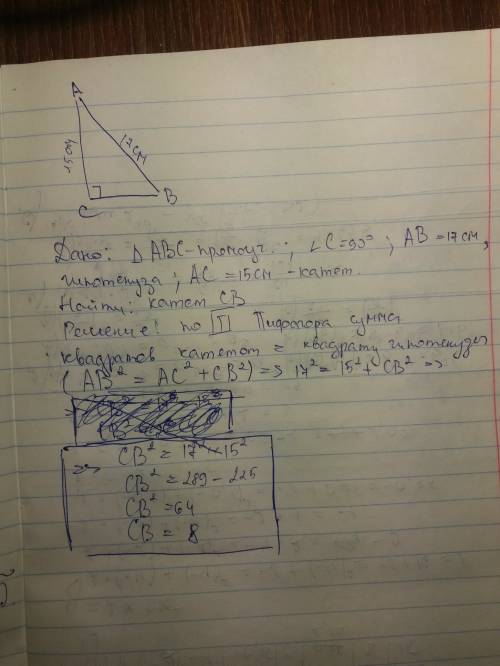 A
15 см
17 см
C
B
Дано: △ ABC - прямоуг. ; ∠C = 90° ; AB = 17 см,
гипотенуза ; AC = 15 см - катет.
Найти: катет CB
Решение: по T Пифагора сумма
квадратов катетот = квадрату гипотенузы
(AB² = AC² + CB²) => 17² = 15² + CB² =>
=> CB² = 17² - 15²
CB² = 289 - 225
CB² = 64
CB = 8